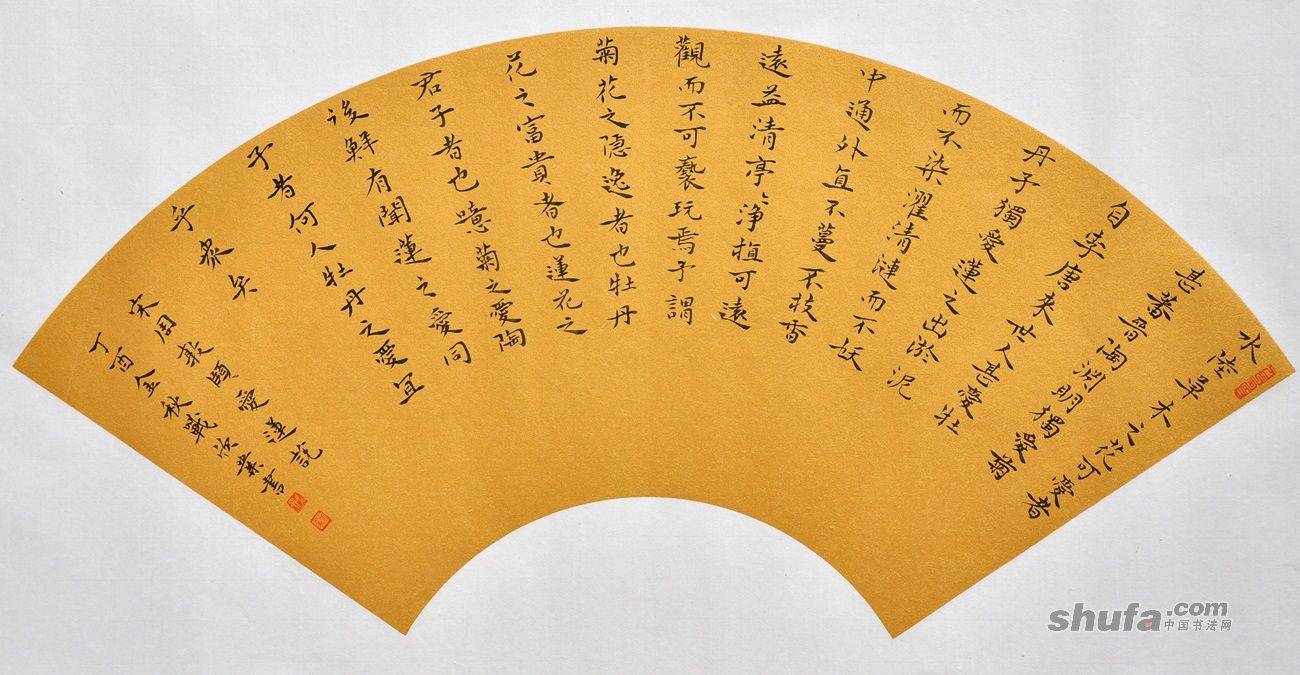 水陸草木之花可愛者
甚蕃晉陶渊明獨愛菊
自李唐来世人甚愛牡
丹予獨愛蓮之出淤泥
而不染濯清漣而不妖
中通外直不蔓不枝香
遠益清亭〻淨植可遠
觀而不可褻玩焉予謂
菊花之隐逸者也牡丹
花之富貴者也蓮花之
君子者也噫菊之愛陶
後鮮有聞蓮之愛同
予者何人牡丹之愛宜
乎衆矣
宋周敦頤愛蓮說
丁酉金秋戰書
shufa.com
中国书法网